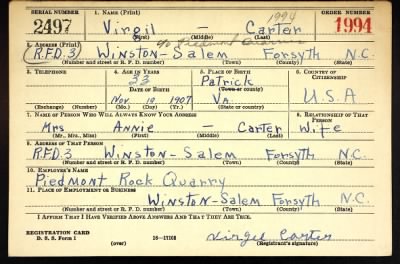 SERIAL NUMBER 1. NAME (Print) ORDER NUMBER
2497 Virgil — Carter 1994 1994
(First) (Middle) (Last)
2. ADDRESS (Print) % Piedmont Quarries
R.F.D. 3) Winston-Salem Forsyth N.C.
(Number and street or R. F. D. number) (Town) (County) (State)
3. TELEPHONE 4. AGE IN YEARS 5. PLACE OF BIRTH 6. COUNTRY OF CITIZENSHIP
33 Patrick
DATE OF BIRTH (Town or county)
Nov 19 1907 Va. U.S.A
(Exchange) (Number) (Mo.) (Day) (Yr.) (State or country)
7. NAME OF PERSON WHO WILL ALWAYS KNOW YOUR ADDRESS 8. RELATIONSHIP OF THAT PERSON
Mrs Annie — Carter Wife
(Mr., Mrs., Miss) (First) (Middle) (Last)
9. ADDRESS OF THAT PERSON
R.F.D. 3 Winston-Salem Forsyth N.C.
(Number and street or R. F. D. number) (Town) (County) (State)
10. EMPLOYER'S NAME
Piedmont Rock Quarry
11. PLACE OF EMPLOYMENT OR BUSINESS
Winston-Salem Forsyth N.C.
(Number and street or R. F. D. number) (Town) (County) (State)
I AFFIRM THAT I HAVE VERIFIED ABOVE ANSWERS AND THAT THEY ARE TRUE.
REGISTRATION CARD
D. S. S. Form 1 (over) 16—17105 Virgil Carter
(Registrant's signature)